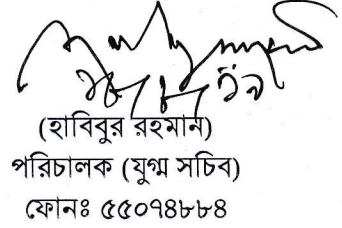 (হাবিবুর রহমান)
পরিচালক (যুগ্ম সচিব)
ফোনঃ ৫৫০৭৪৮৮৪